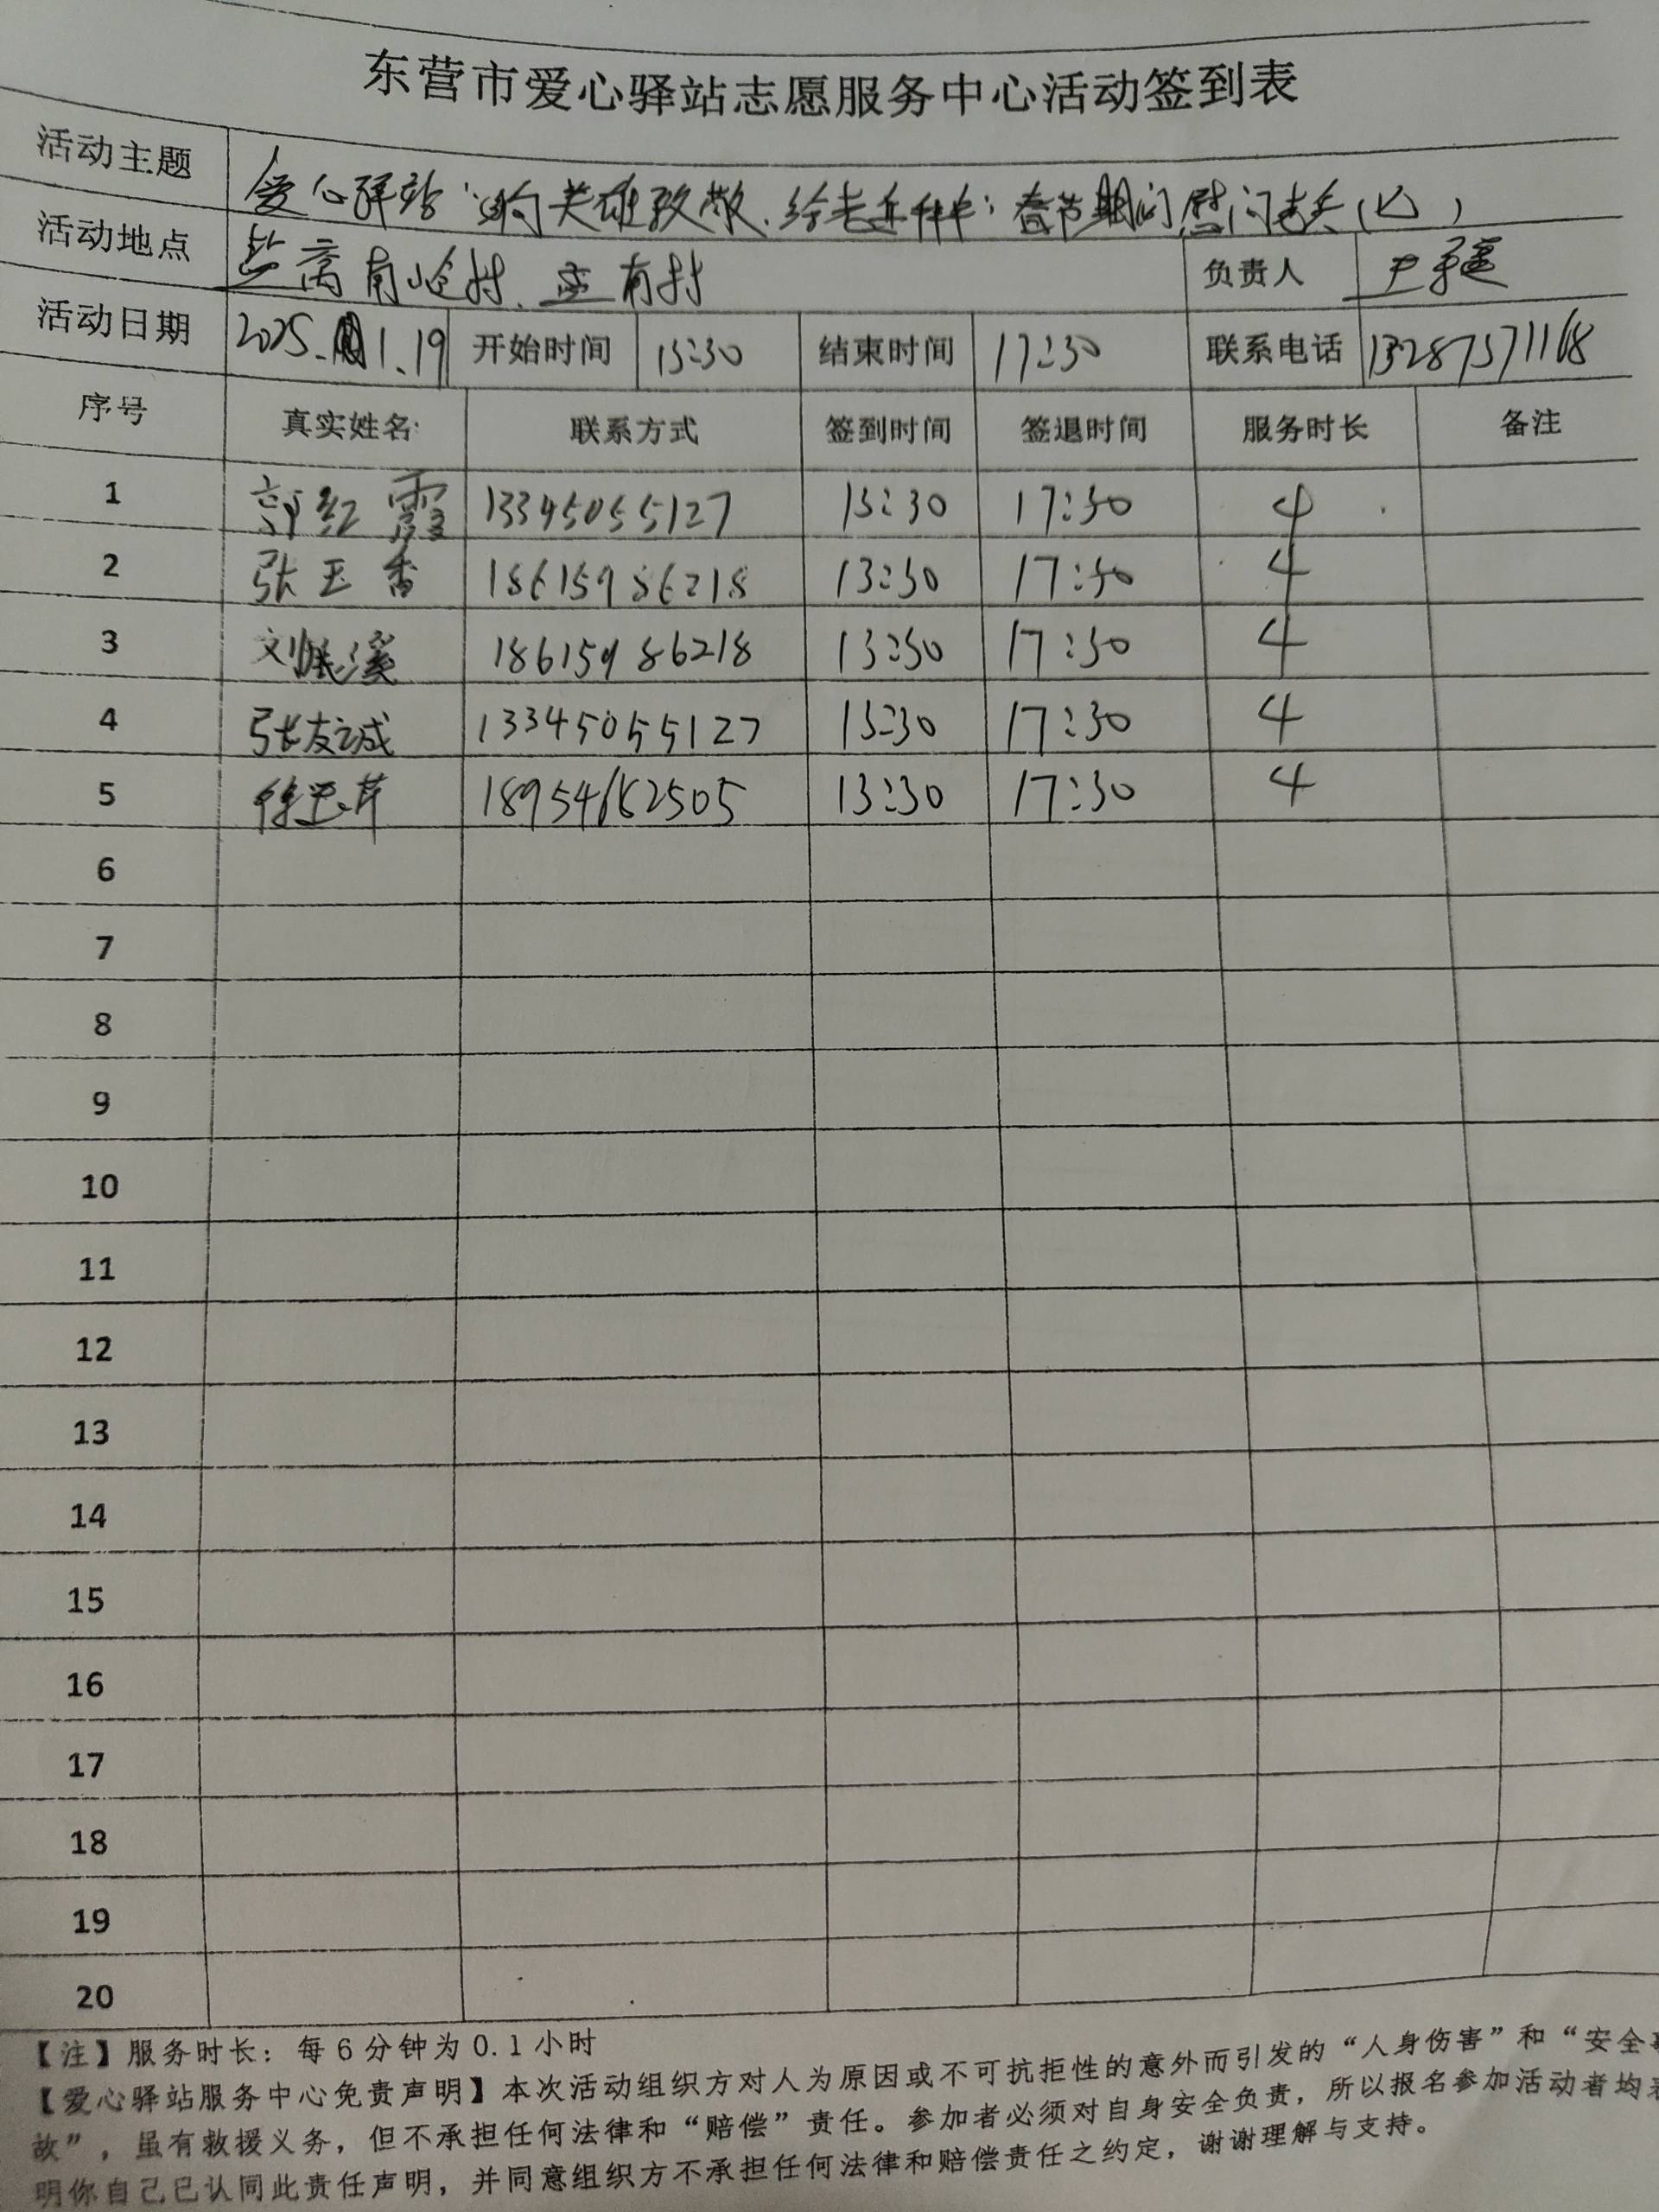 东营市爱心驿站志愿服务中心活动签到表
活动主题 爱心驿站"向英雄致敬.给老兵 春节期间慰问老兵(七)
活动地点 盐窝南 村、 有村 负责人 尹
活动日期 2025.1.19 开始时间 13:30 结束时间 17:30 联系电话 13287371168
序号 真实姓名: 联系方式 签到时间 签退时间 服务时长 备注
1 郭红霞 13345055127 13:30 17:30 4
2 张玉香 18615986218 13:30 17:30 4
3 刘 溪 18615986218 13:30 17:30 4
4 张友诚 13345055127 13:30 17:30 4
5 徐 芹 18954652505 13:30 17:30 4
6
7
8
9
10
11
12
13
14
15
16
17
18
19
20
【注】服务时长：每6分钟为0.1小时
【爱心驿站服务中心免责声明】本次活动组织方对人为原因或不可抗拒性的意外而引发的“人身伤害”和“安全事
故”，虽有救援义务，但不承担任何法律和“赔偿”责任。参加者必须对自身安全负责，所以报名参加活动者均表
明你自己已认同此责任声明，并同意组织方不承担任何法律和赔偿责任之约定，谢谢理解与支持。